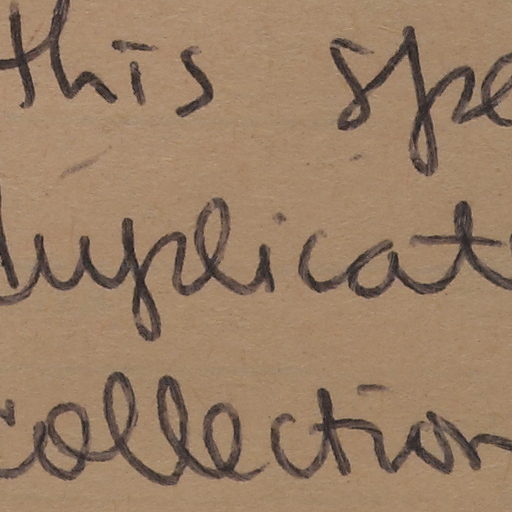 this spe
duplicat
collection